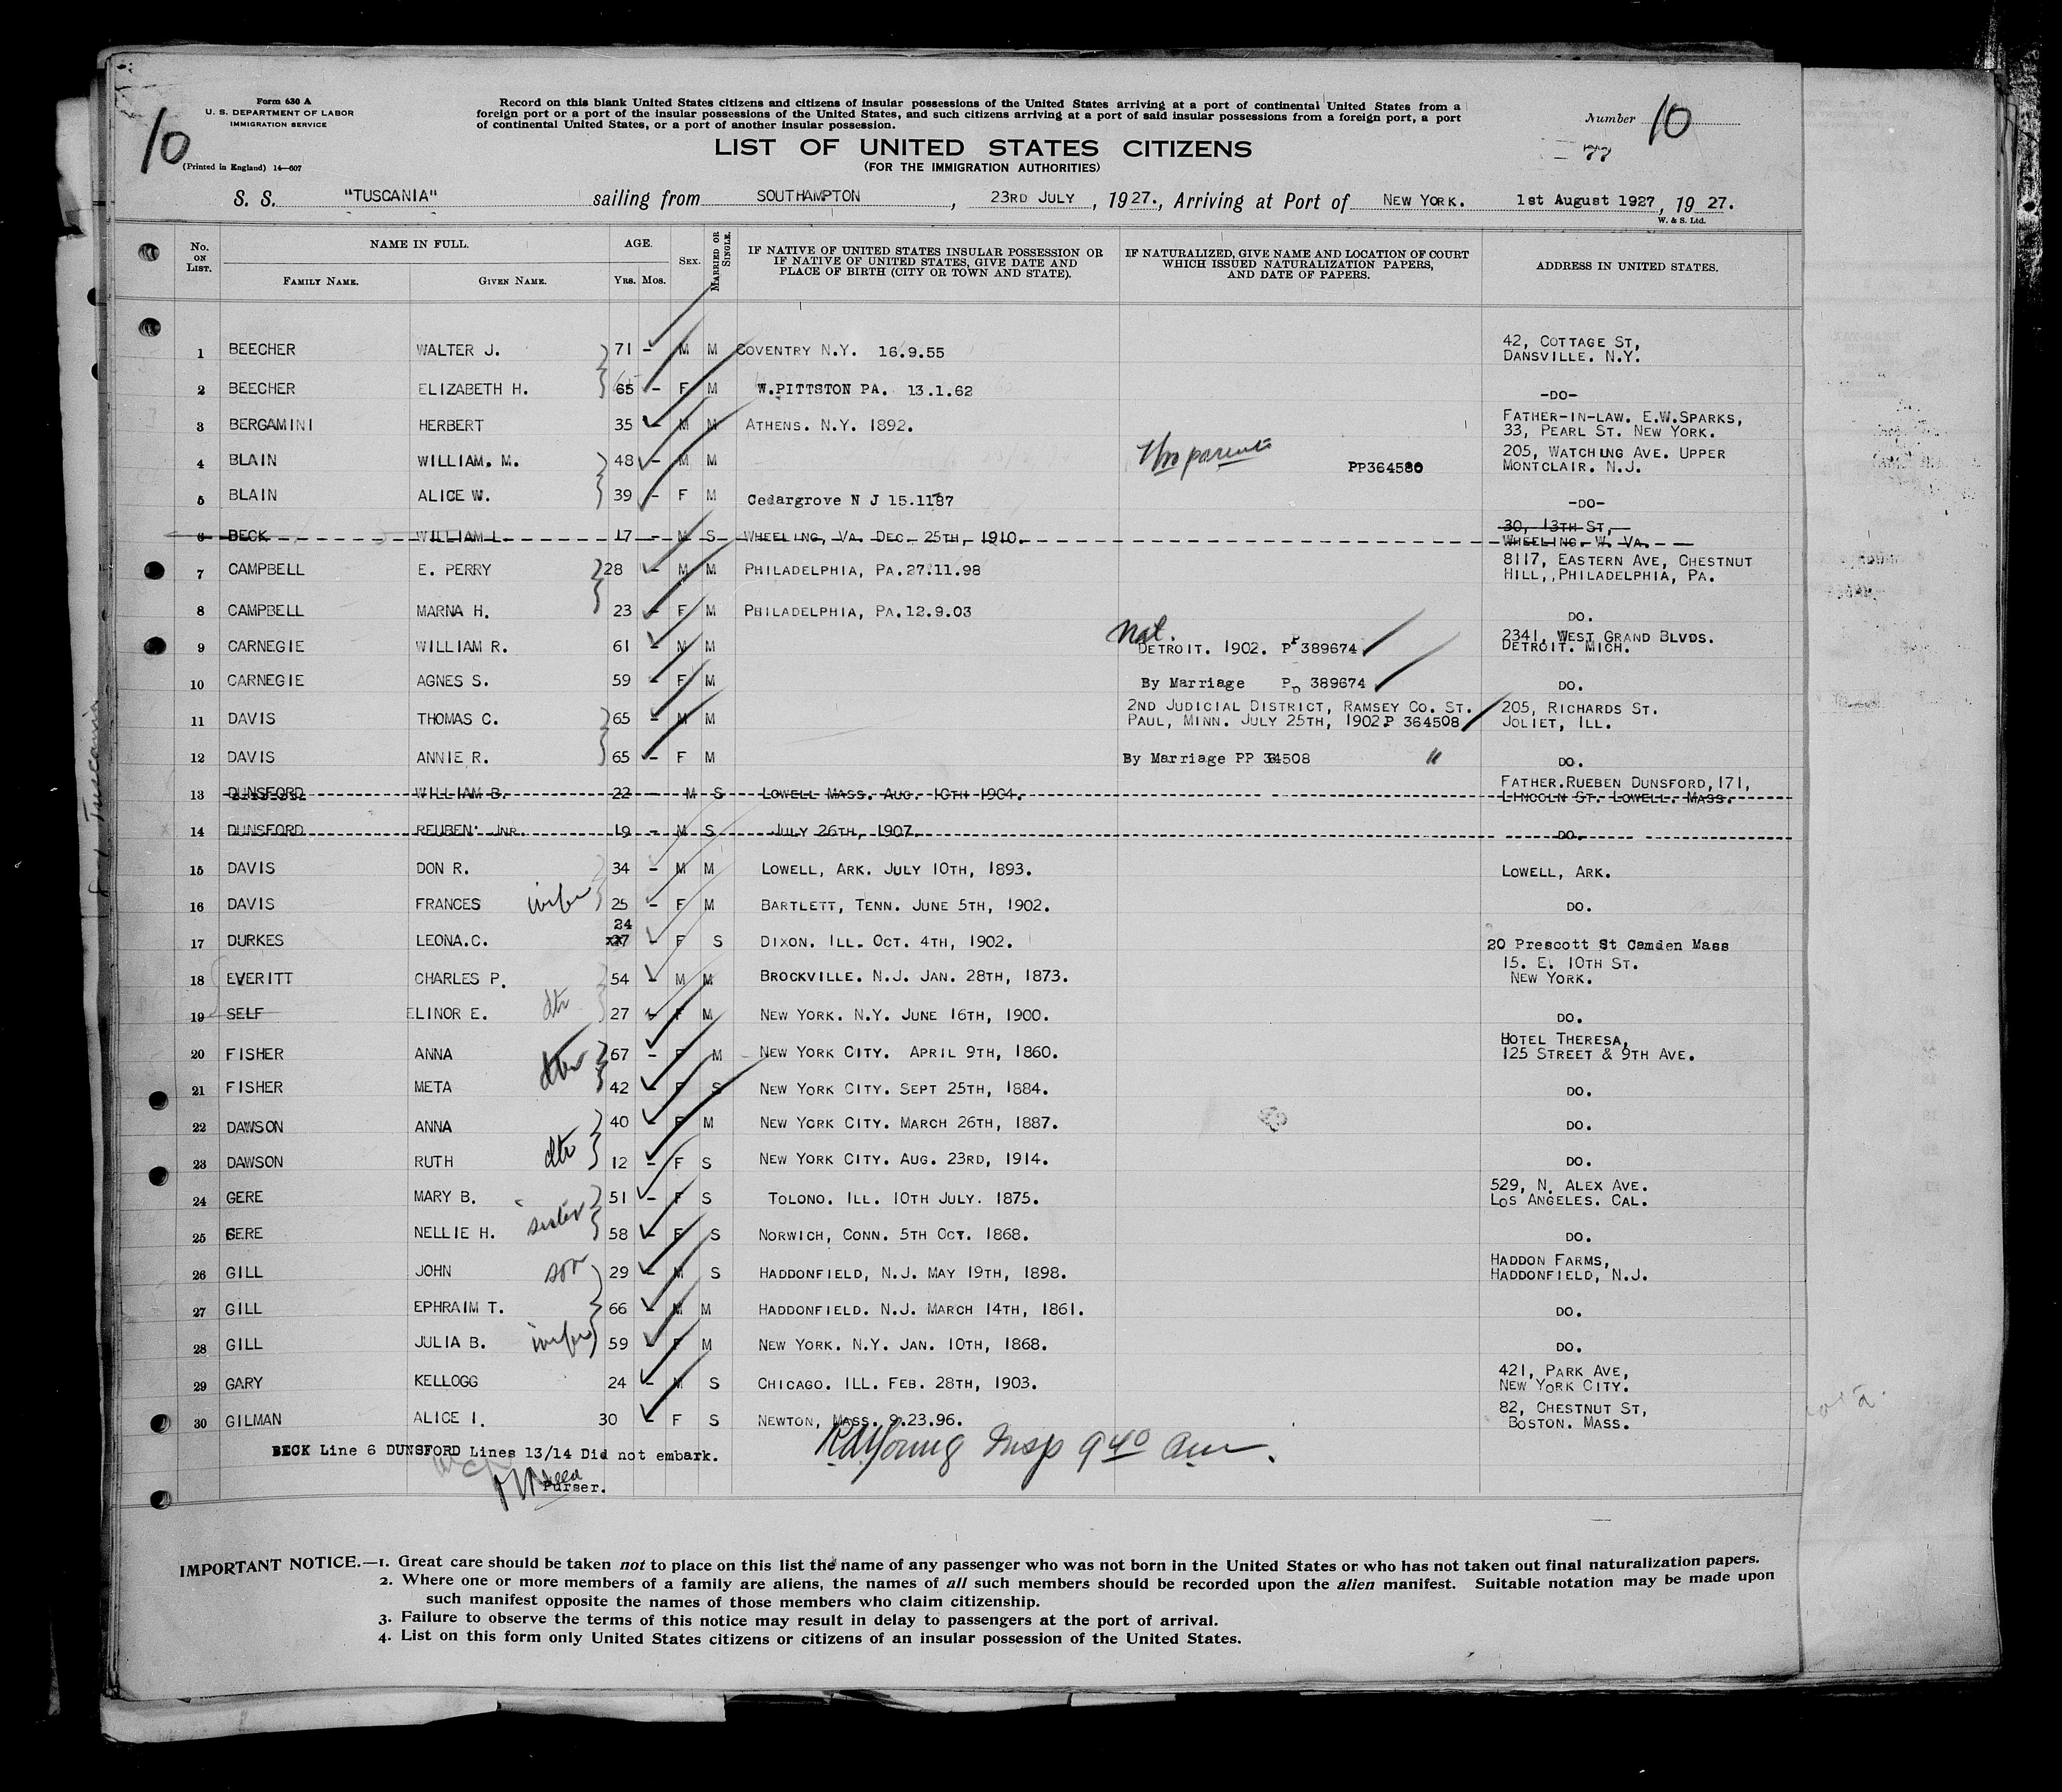 Form 630 A
U. S. DEPARTMENT OF LABOR
IMMIGRATION SERVICE
10
(Printed in England) 14—607
Record on this blank United States citizens and citizens of insular possessions of the United States arriving at a port of continental United States from a
foreign port or a port of the insular possessions of the United States, and such citizens arriving at a port of said insular possessions from a foreign port, a port
of continental United States, or a port of another insular possession.
Number 10
77
LIST OF UNITED STATES CITIZENS
(FOR THE IMMIGRATION AUTHORITIES)
S. S. "TUSCANIA" sailing from SOUTHAMPTON, 23RD JULY, 1927., Arriving at Port of NEW YORK. 1st August 1927, 19 27.
W. & S. Ltd.
No. ON LIST. NAME IN FULL. FAMILY NAME. GIVEN NAME. AGE. YRS. MOS. SEX. MARRIED OR SINGLE. IF NATIVE OF UNITED STATES INSULAR POSSESSION OR IF NATIVE OF UNITED STATES, GIVE DATE AND PLACE OF BIRTH (CITY OR TOWN AND STATE). IF NATURALIZED, GIVE NAME AND LOCATION OF COURT WHICH ISSUED NATURALIZATION PAPERS, AND DATE OF PAPERS. ADDRESS IN UNITED STATES.
1 BEECHER WALTER J. 71 - M M COVENTRY N.Y. 16.9.55 42, COTTAGE ST, DANSVILLE. N.Y.
2 BEECHER ELIZABETH H. 65 - F M W.PITTSTON PA. 13.1.62 -DO-
3 BERGAMINI HERBERT 35 - M M ATHENS. N.Y. 1892. FATHER-IN-LAW. E.W.SPARKS, 33, PEARL ST. NEW YORK.
4 BLAIN WILLIAM. M. 48 - M M parents PP364580 205, WATCHUNG AVE. UPPER MONTCLAIR. N.J.
5 BLAIN ALICE W. 39 - F M Cedargrove N J 15.1187 -DO-
6 BECK WILLIAM L. 17 - M S WHEELING, VA. DEC. 25TH, 1910. 30, 13TH ST, WHEELING. W. VA.
7 CAMPBELL E. PERRY 28 - M M PHILADELPHIA, PA.27.11.98 8117, EASTERN AVE, CHESTNUT HILL,,PHILADELPHIA, PA.
8 CAMPBELL MARNA H. 23 - F M PHILADELPHIA, PA.12.9.03 DO.
9 CARNEGIE WILLIAM R. 61 - M M Nat. DETROIT. 1902. PP 389674 2341, WEST GRAND BLVDS. DETROIT. MICH.
10 CARNEGIE AGNES S. 59 - F M By Marriage Pp 389674 DO.
11 DAVIS THOMAS C. 65 - M M 2ND JUDICIAL DISTRICT, RAMSEY CO. ST. PAUL, MINN. JULY 25TH, 1902.P 364508 205, RICHARDS ST. JOLIET, ILL.
12 DAVIS ANNIE R. 65 - F M By Marriage PP 34508 " DO.
13 DUNSFORD WILLIAM B. 22 - M S LOWELL MASS. AUG. 10TH 1904. FATHER.RUEBEN DUNSFORD,171, LINCOLN ST. LOWELL. MASS.
14 DUNSFORD REUBEN JNR. 19 - M S JULY 26TH, 1907. DO.
15 DAVIS DON R. 34 - M M LOWELL, ARK. JULY 10TH, 1893. LOWELL, ARK.
16 DAVIS FRANCES wife 25 - F M BARTLETT, TENN. JUNE 5TH, 1902. DO.
17 DURKES LEONA.C. 24 27 - F S DIXON. ILL. OCT. 4TH, 1902. 20 Prescott St Camden Mass
18 EVERITT CHARLES P. 54 - M M BROCKVILLE. N.J. JAN. 28TH, 1873. 15. E. 10TH ST. NEW YORK.
19 SELF ELINOR E. dtr 27 - F M NEW YORK. N.Y. JUNE 16TH, 1900. DO.
20 FISHER ANNA 67 - F M NEW YORK CITY. APRIL 9TH, 1860. HOTEL THERESA, 125 STREET & 9TH AVE.
21 FISHER META dtr 42 - F S NEW YORK CITY. SEPT 25TH, 1884. DO.
22 DAWSON ANNA 40 - F M NEW YORK CITY. MARCH 26TH, 1887. DO.
23 DAWSON RUTH dtr 12 - F S NEW YORK CITY. AUG. 23RD, 1914. DO.
24 GERE MARY B. 51 - F S TOLONO. ILL. 10TH JULY. 1875. 529, N. ALEX AVE. LOS ANGELES. CAL.
25 GERE NELLIE H. sister 58 - F S NORWICH, CONN. 5TH OCT. 1868. DO.
26 GILL JOHN son 29 - M S HADDONFIELD, N.J. MAY 19TH, 1898. HADDON FARMS, HADDONFIELD, N.J.
27 GILL EPHRAIM T. 66 - M M HADDONFIELD. N.J. MARCH 14TH, 1861. DO.
28 GILL JULIA B. wife 59 - F M NEW YORK. N.Y. JAN. 10TH, 1868. DO.
29 GARY KELLOGG 24 - M S CHICAGO. ILL. FEB. 28TH, 1903. 421, PARK AVE, NEW YORK CITY.
30 GILMAN ALICE I. 30 - F S NEWTON, MASS. 9.23.96. 82, CHESTNUT ST, BOSTON. MASS.
BECK Line 6 DUNSFORD Lines 13/14 Did not embark.
Young Insp 9 40 am.
Purser.
IMPORTANT NOTICE.—1. Great care should be taken not to place on this list the name of any passenger who was not born in the United States or who has not taken out final naturalization papers.
2. Where one or more members of a family are aliens, the names of all such members should be recorded upon the alien manifest. Suitable notation may be made upon
such manifest opposite the names of those members who claim citizenship.
3. Failure to observe the terms of this notice may result in delay to passengers at the port of arrival.
4. List on this form only United States citizens or citizens of an insular possession of the United States.